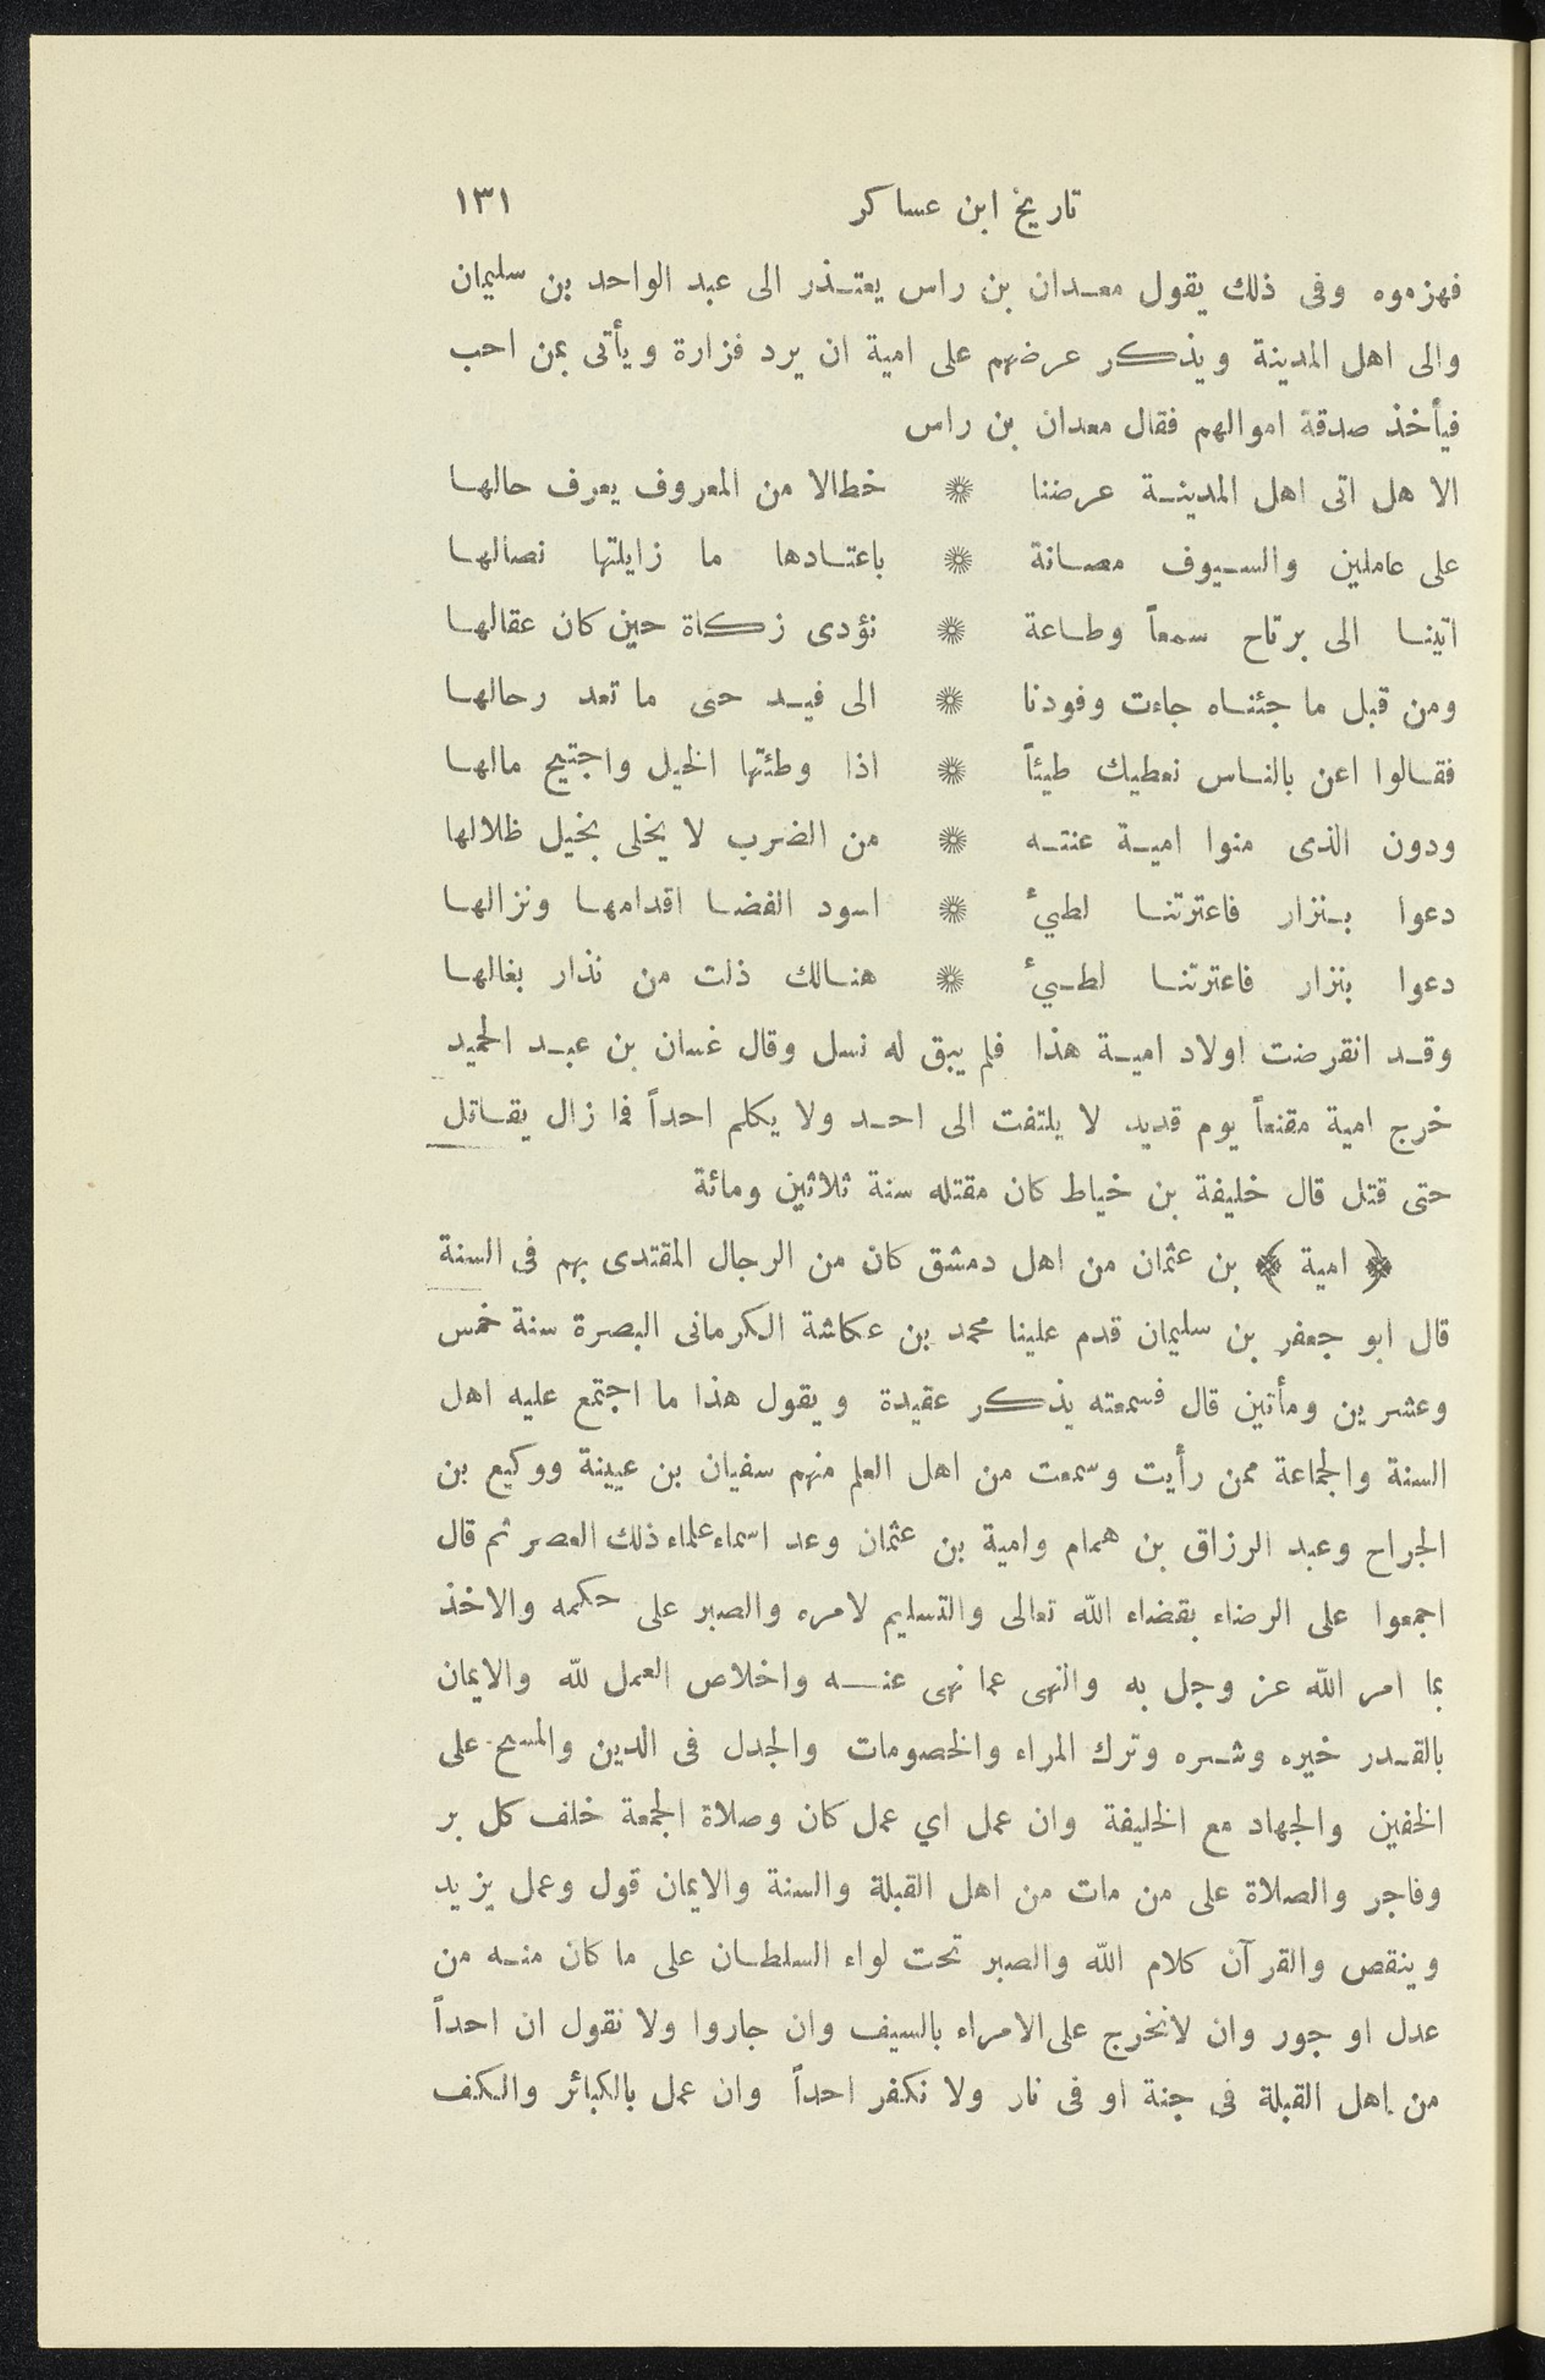 تاريخ ابن عساكر ١٣١
فهزموه وفى ذلك يقول معدان بن راس يعتذر الى عبد الواحد بن سليمان
والى اهل المدينة ويذكر عرضهم على امية ان يرد فزارة ويأتى بمن احب
فيأخذ صدقة اموالهم فقال معدان بن راس
الا هل اتى اهل المدينة عرضنا ❊ خطالا من المعروف يعرف حالها
على عاملين والسيوف مصانة ❊ باعتادها ما زايلتها نصالها
اتينا الى برتاح سمعاً وطاعة ❊ نؤدى زكاة حين كان عقالها
ومن قبل ما جئناه جاءت وفودنا ❊ الى فيد حتى ما تعد رحالها
فقالوا اعن بالناس نعطيك طيئاً ❊ اذا وطئتها الخيل واجتيح مالها
ودون الذى منوا امية عنته ❊ من الضرب لا يخلى بخيل ظلالها
دعوا بنزار فاعترتنا لطيئ ❊ اسود الغضا اقدامها ونزالها
دعوا بنزار فاعترتنا لطيئ ❊ هنالك ذلت من نذار بغالها
وقد انقرضت اولاد امية هذا فلم يبق له نسل وقال غسان بن عبد الحميد
خرج امية مقنعاً يوم قديد لا يلتفت الى احد ولا يكلم احداً فما زال يقاتل
حتى قتل قال خليفة بن خياط كان مقتله سنة ثلاثين ومائة
﴿ امية ﴾ بن عثمان من اهل دمشق كان من الرجال المقتدى بهم فى السنة
قال ابو جعفر بن سليمان قدم علينا محمد بن عكاشة الكرمانى البصرة سنة خمس
وعشرين ومأتين قال فسمعته يذكر عقيدة ويقول هذا ما اجتمع عليه اهل
السنة والجماعة ممن رأيت وسمعت من اهل العلم منهم سفيان بن عيينة ووكيع بن
الجراح وعبد الرزاق بن همام وامية بن عثمان وعد اسماء علماء ذلك العصر ثم قال
اجمعوا على الرضاء بقضاء الله تعالى والتسليم لامره والصبر على حكمه والاخذ
بما امر الله عز وجل به والنهى عما نهى عنه واخلاص العمل لله والايمان
بالقدر خيره وشره وترك المراء والخصومات والجدل فى الدين والمسح على
الخفين والجهاد مع الخليفة وان عمل اي عمل كان وصلاة الجمعة خلف كل بر
وفاجر والصلاة على من مات من اهل القبلة والسنة والايمان قول وعمل يزيد
وينقص والقرآن كلام الله والصبر تحت لواء السلطان على ما كان منه من
عدل او جور وان لانخرج على الامراء بالسيف وان جاروا ولا نقول ان احداً
من اهل القبلة فى جنة او فى نار ولا نكفر احداً وان عمل بالكبائر والكف